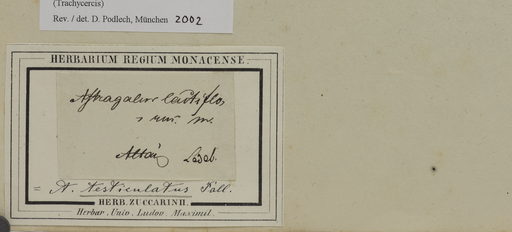 (Trachycercis)
Rev. / det. D. Podlech, München 2002
HERBARIUM REGIUM MONACENSE.
Astragalus lactiflos
Altai Ledeb.
= A. testiculatus Pall.
HERB. ZUCCARINII.
Herbar. Univ. Ludov. Maximil.